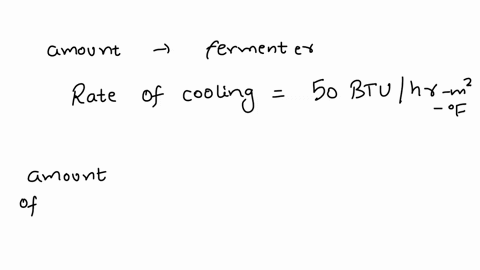 amount → fermenter
Rate of cooling = 50 BTU/hr-m²
-°F
amount
of